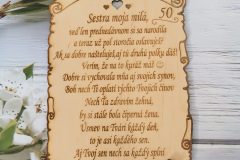 50
Sestra moja milá,
veď len prednedávnom si sa narodila
a teraz už pol storočia oslavuješ?
Ak sa dobre naštelujel, aj tú druhú polku dáš!
Verím, že na to kuráž máš
Dobre si vychovala mňa aj svojich synov,
Boh nech Ti oplatí týchto Tvojich činov
Nech Ťa zdravím žehná,
by si stále bola čiperná žena.
Úsmev na Tvári každý deň,
to je asi každého sen.
Aj Tvoj sen nech sa každý splní